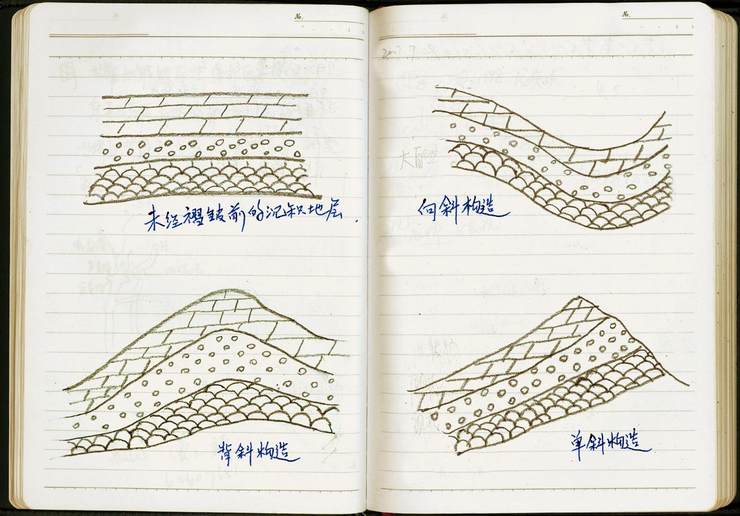 №.
未经褶皱前的沉积地层.
背斜构造
№.
向斜构造
单斜构造